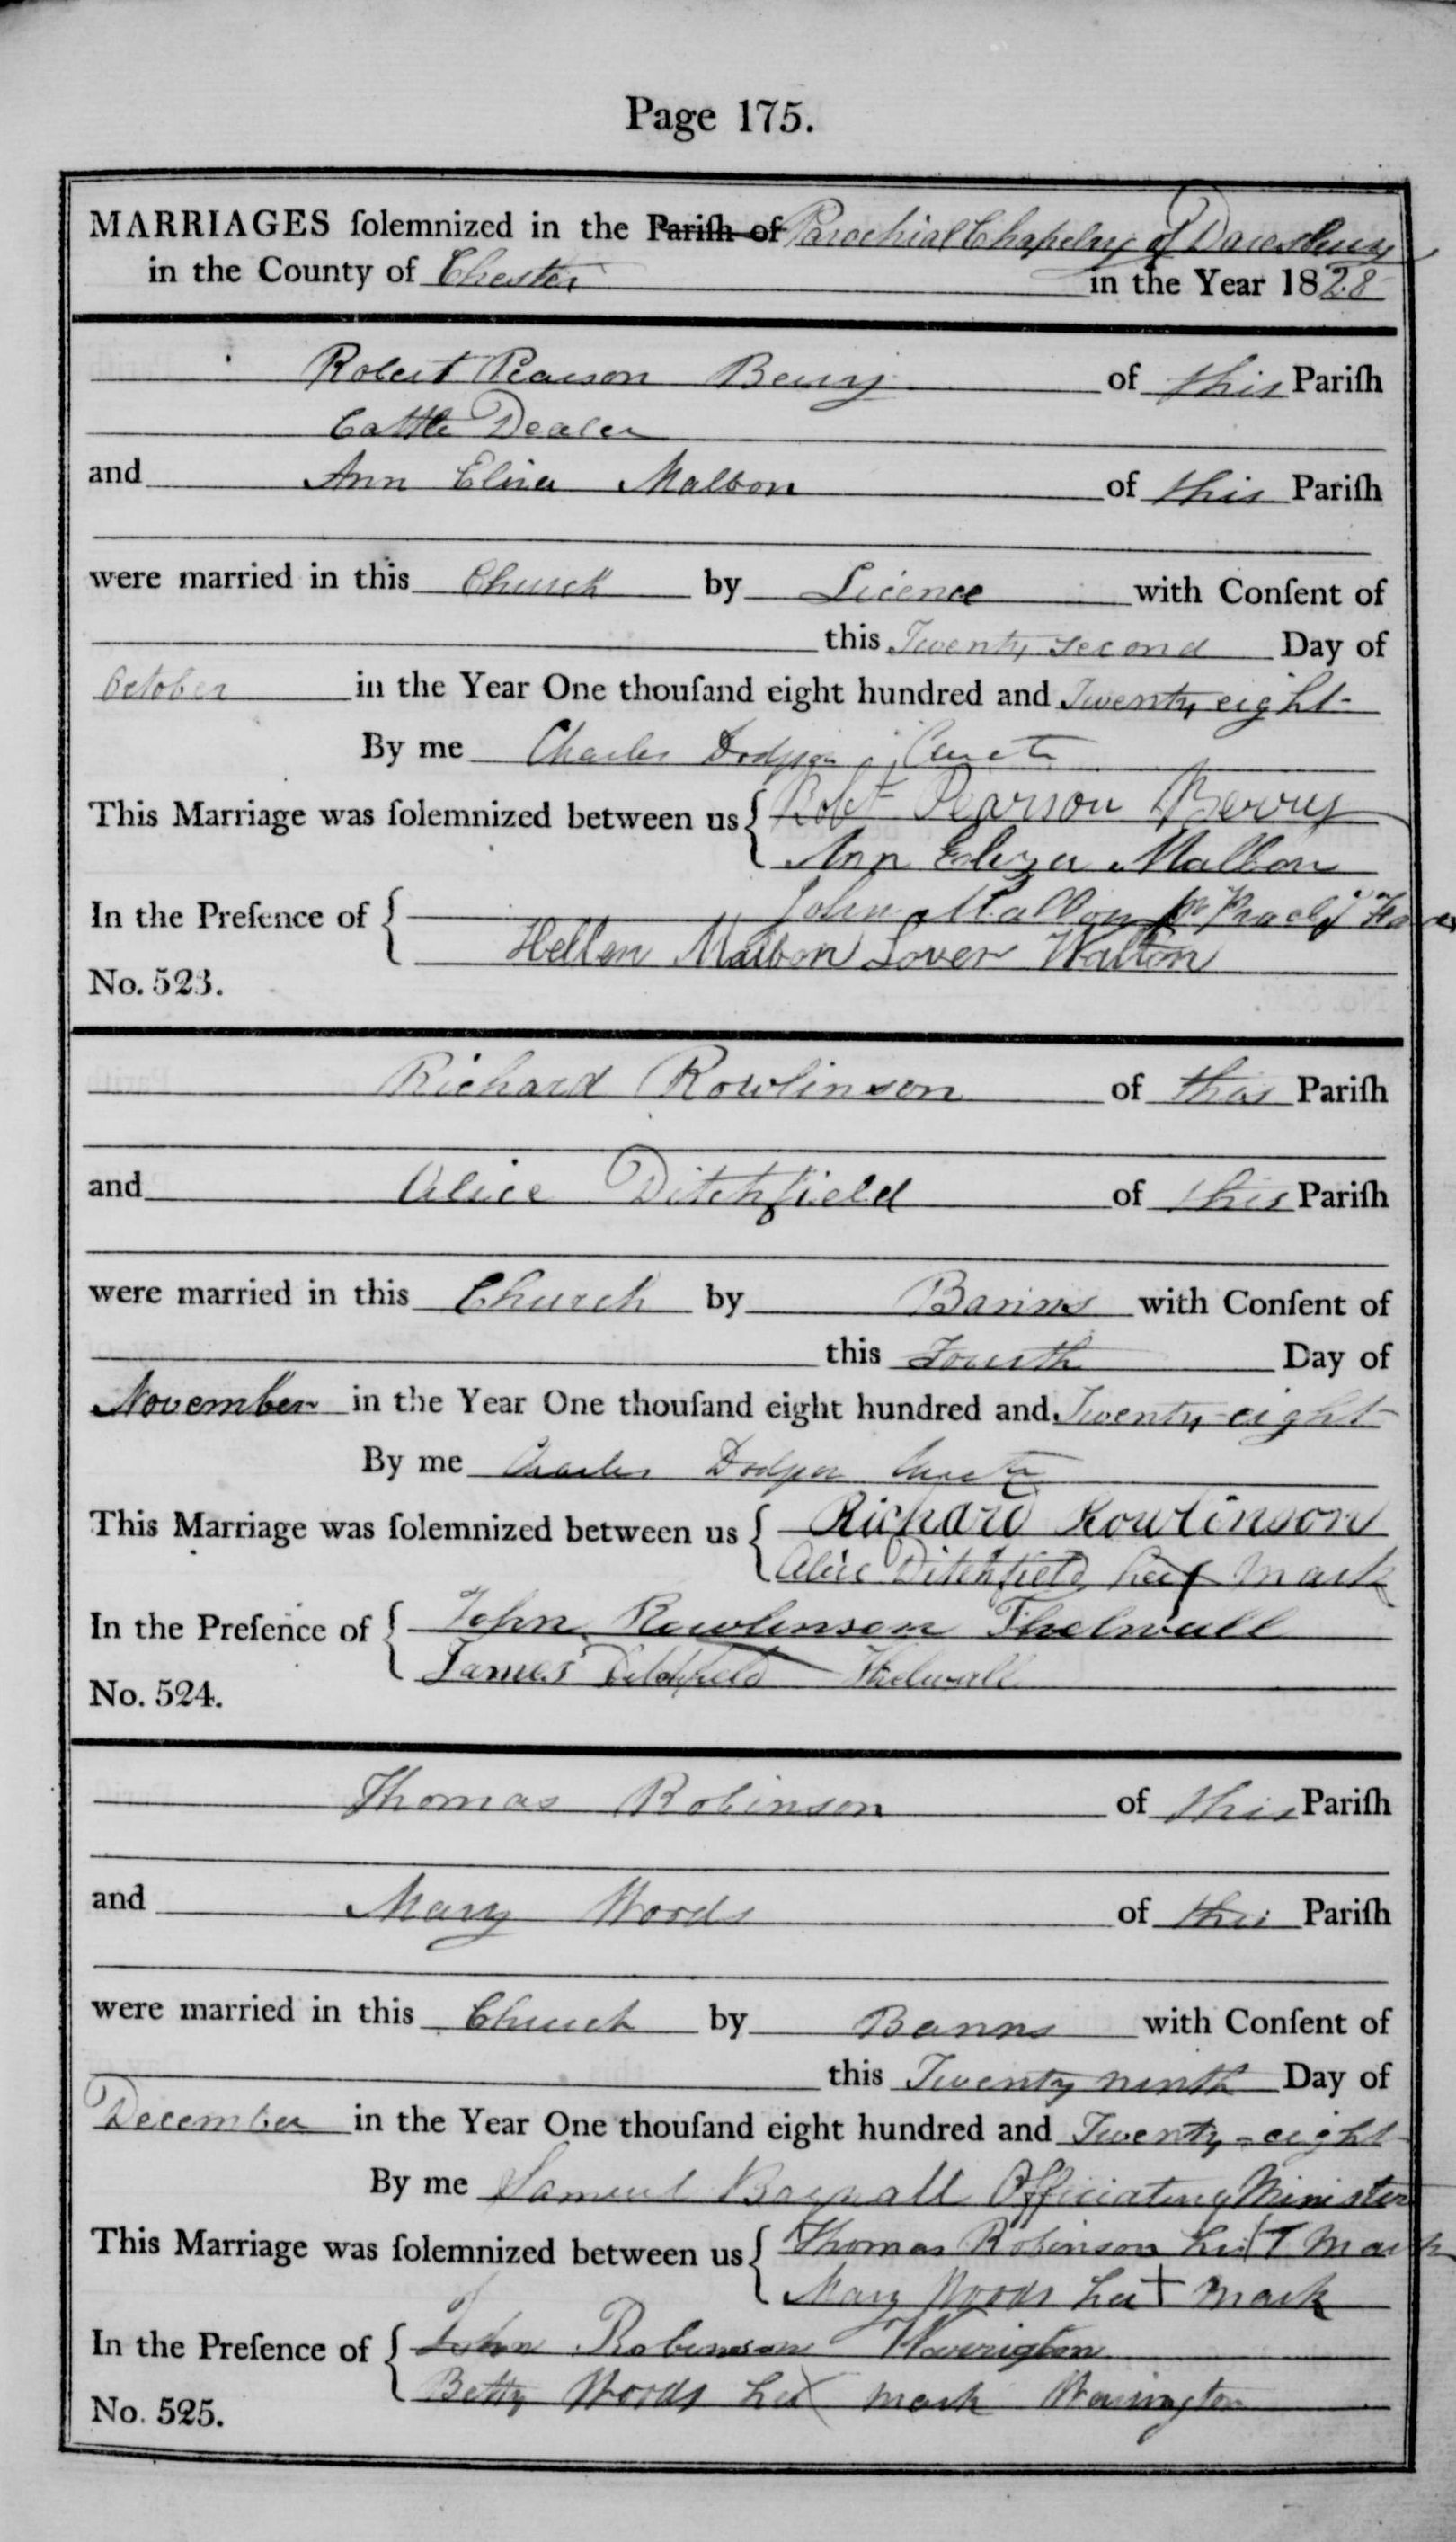 Page 175.
MARRIAGES ſolemnized in the Pariſh of Parochial Chapelry of Daresbury
in the County of Chester in the Year 1828
Robert Pearson Berry of this Pariſh
Cattle Dealer
and Ann Eliza Malbon of this Pariſh
were married in this Church by Licence with Conſent of
this Twenty second Day of
October in the Year One thouſand eight hundred and Twenty eight
By me Charles Dodgson Curate
This Marriage was ſolemnized between us Robt Pearson Berry
Ann Eliza Malbon
In the Preſence of John Malbon
Hellen Malbon Lower Walton
No. 523.
Richard Rowlinson of this Pariſh
and Alice Ditchfield of this Pariſh
were married in this Church by Banns with Conſent of
this Fourth Day of
November in the Year One thouſand eight hundred and Twenty-eight
By me Charles Dodgson Curate
This Marriage was ſolemnized between us Richard Rowlinson
Alice Ditchfield her X mark
In the Preſence of John Rowlinson Thelwall
James Ditchfield Thelwall
No. 524.
Thomas Robinson of this Pariſh
and Mary Woods of this Pariſh
were married in this Church by Banns with Conſent of
this Twenty ninth Day of
December in the Year One thouſand eight hundred and Twenty-eight
By me Samuel Bagnall Officiating Minister
This Marriage was ſolemnized between us Thomas Robinson his T mark
Mary Woods her + mark
In the Preſence of John Robinson Warrington
Betty Woods her X mark Warrington
No. 525.